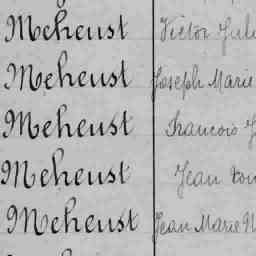 Meheust Victor Jule
Meheust Joseph Marie
Meheust Francois J
Meheust Jean
Meheust Jean Marie